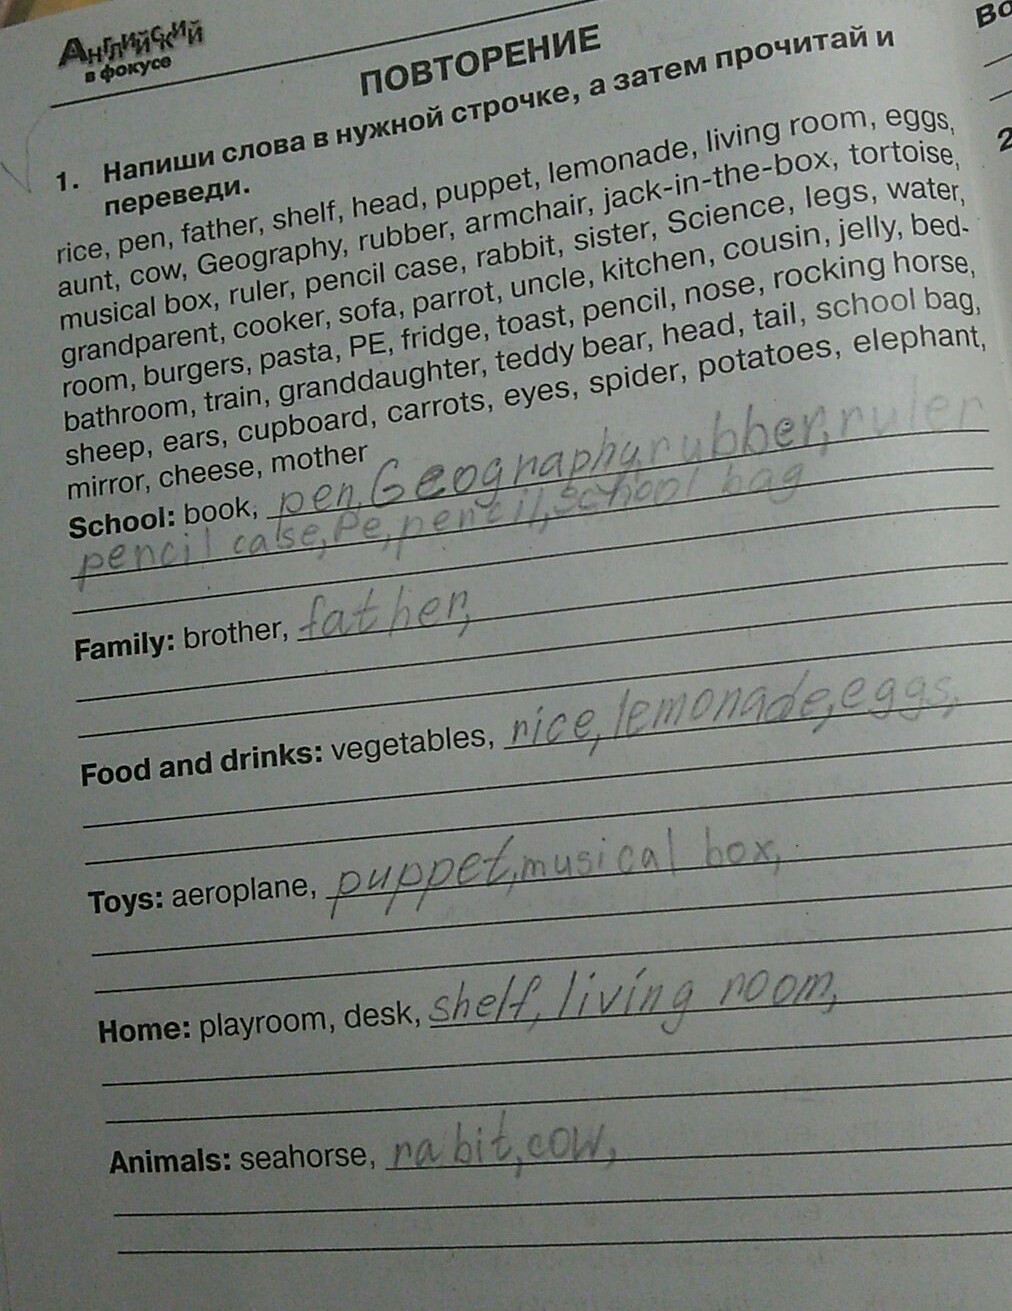 Английский
в фокусе
Во
ПОВТОРЕНИЕ
1. Напиши слова в нужной строчке, а затем прочитай и
переведи.
2
rice, pen, father, shelf, head, puppet, lemonade, living room, eggs,
aunt, cow, Geography, rubber, armchair, jack-in-the-box, tortoise,
musical box, ruler, pencil case, rabbit, sister, Science, legs, water,
grandparent, cooker, sofa, parrot, uncle, kitchen, cousin, jelly, bed-
room, burgers, pasta, PE, fridge, toast, pencil, nose, rocking horse,
bathroom, train, granddaughter, teddy bear, head, tail, school bag,
sheep, ears, cupboard, carrots, eyes, spider, potatoes, elephant,
mirror, cheese, mother
School: book, pen, Geography, rubber, ruler
pencil case, Pe, pencil, School bag
Family: brother, father,
Food and drinks: vegetables, rice, lemonade, eggs,
Toys: aeroplane, puppet, musical box,
Home: playroom, desk, shelf, living room,
Animals: seahorse, rabit, cow,